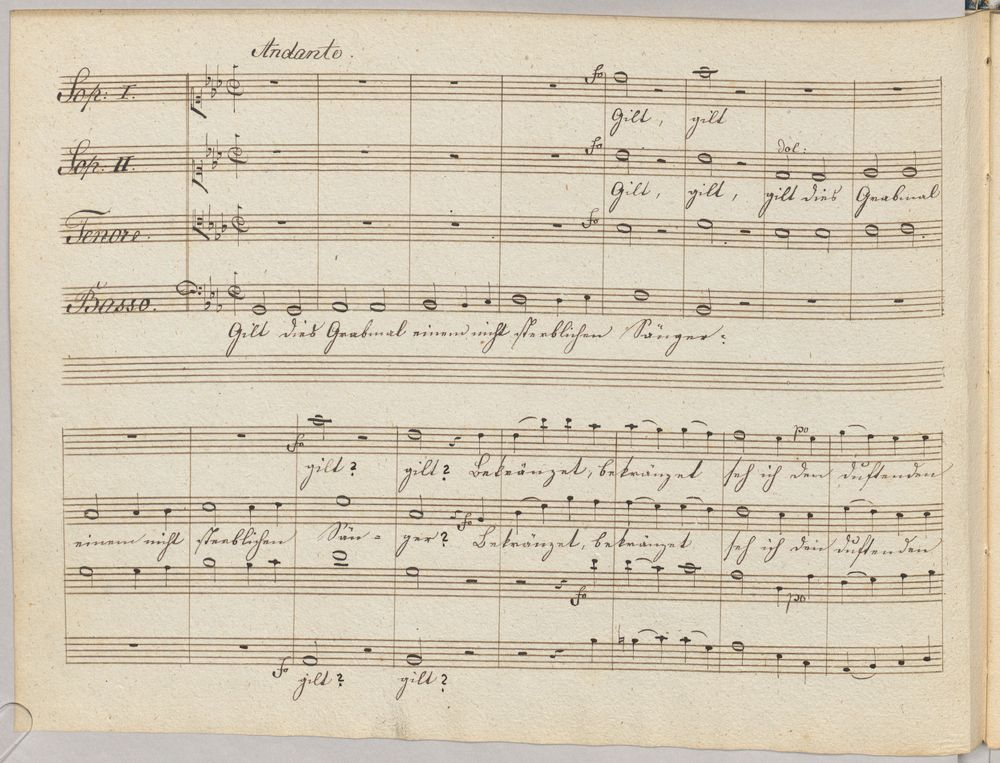 Andante.
Sop: I.
fo
Gilt, gilt
Sop: II.
fo
dol:
Gilt, gilt, gilt dies Grabmal
Tenore.
fo
Basso.
Gilt dies Grabmal einem nicht sterblichen Sänger:
fo
po
gilt? gilt? Bekränzet, bekränzet seh ich den duftenden
fo
einem nicht sterblichen Sän - ger? Bekränzet, bekränzet seh ich den duftenden
fo
po
fo
gilt? gilt?